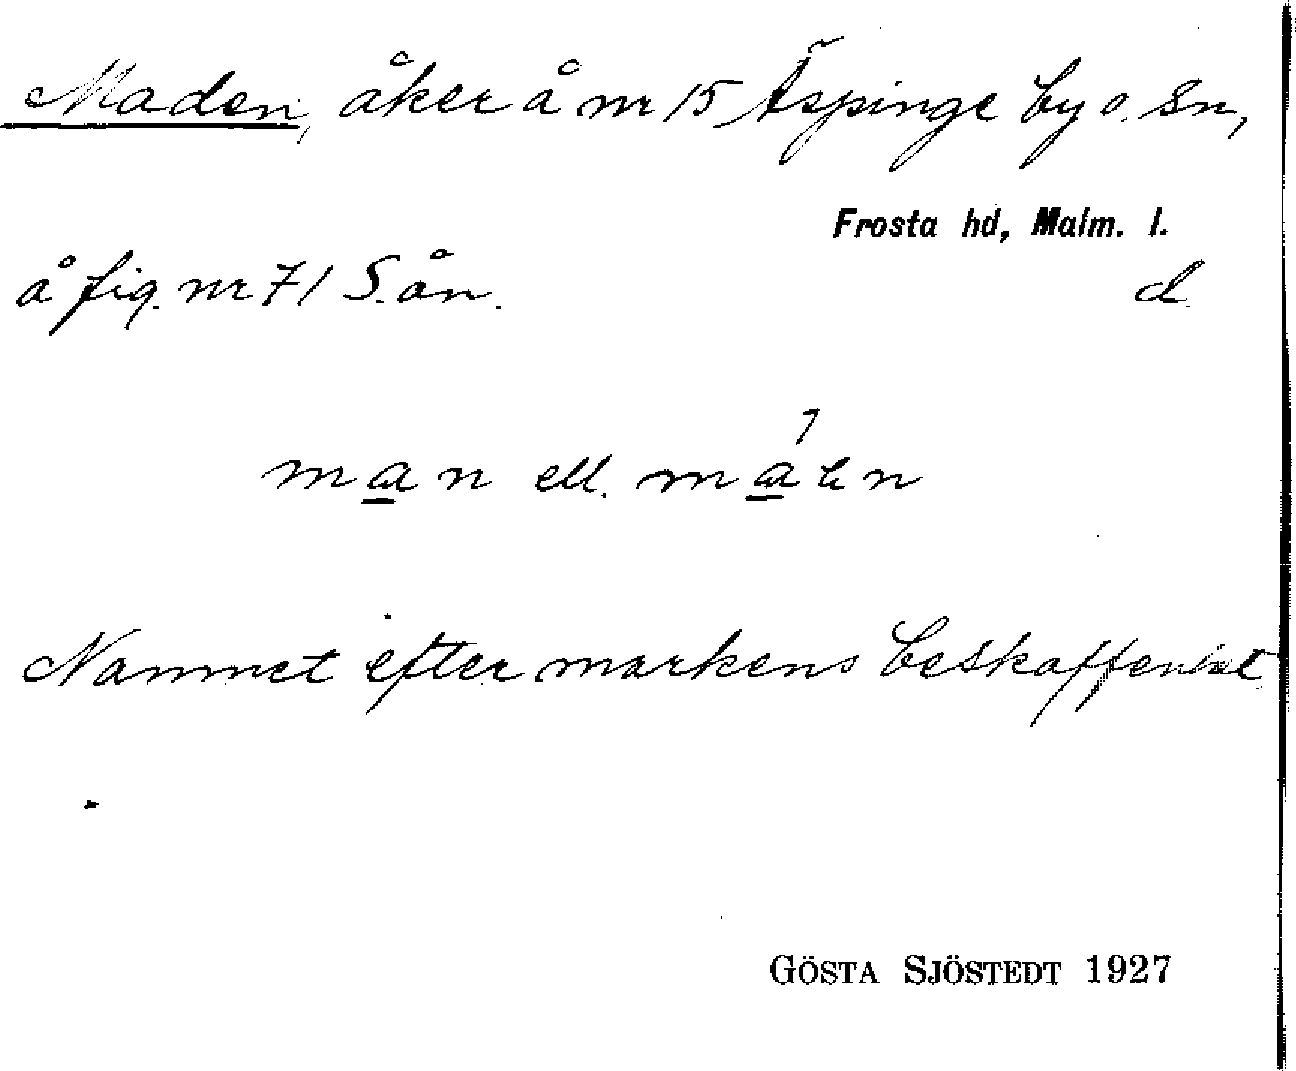 Maden, åker å nr 15 Äspinge by o. Sn,
Frosta hd, Malm. l.
å fig. nr 71 S. ån. d
man ell.
Namnet efter markens beskaffenhet
GÖSTA SJÖSTEDT 1927